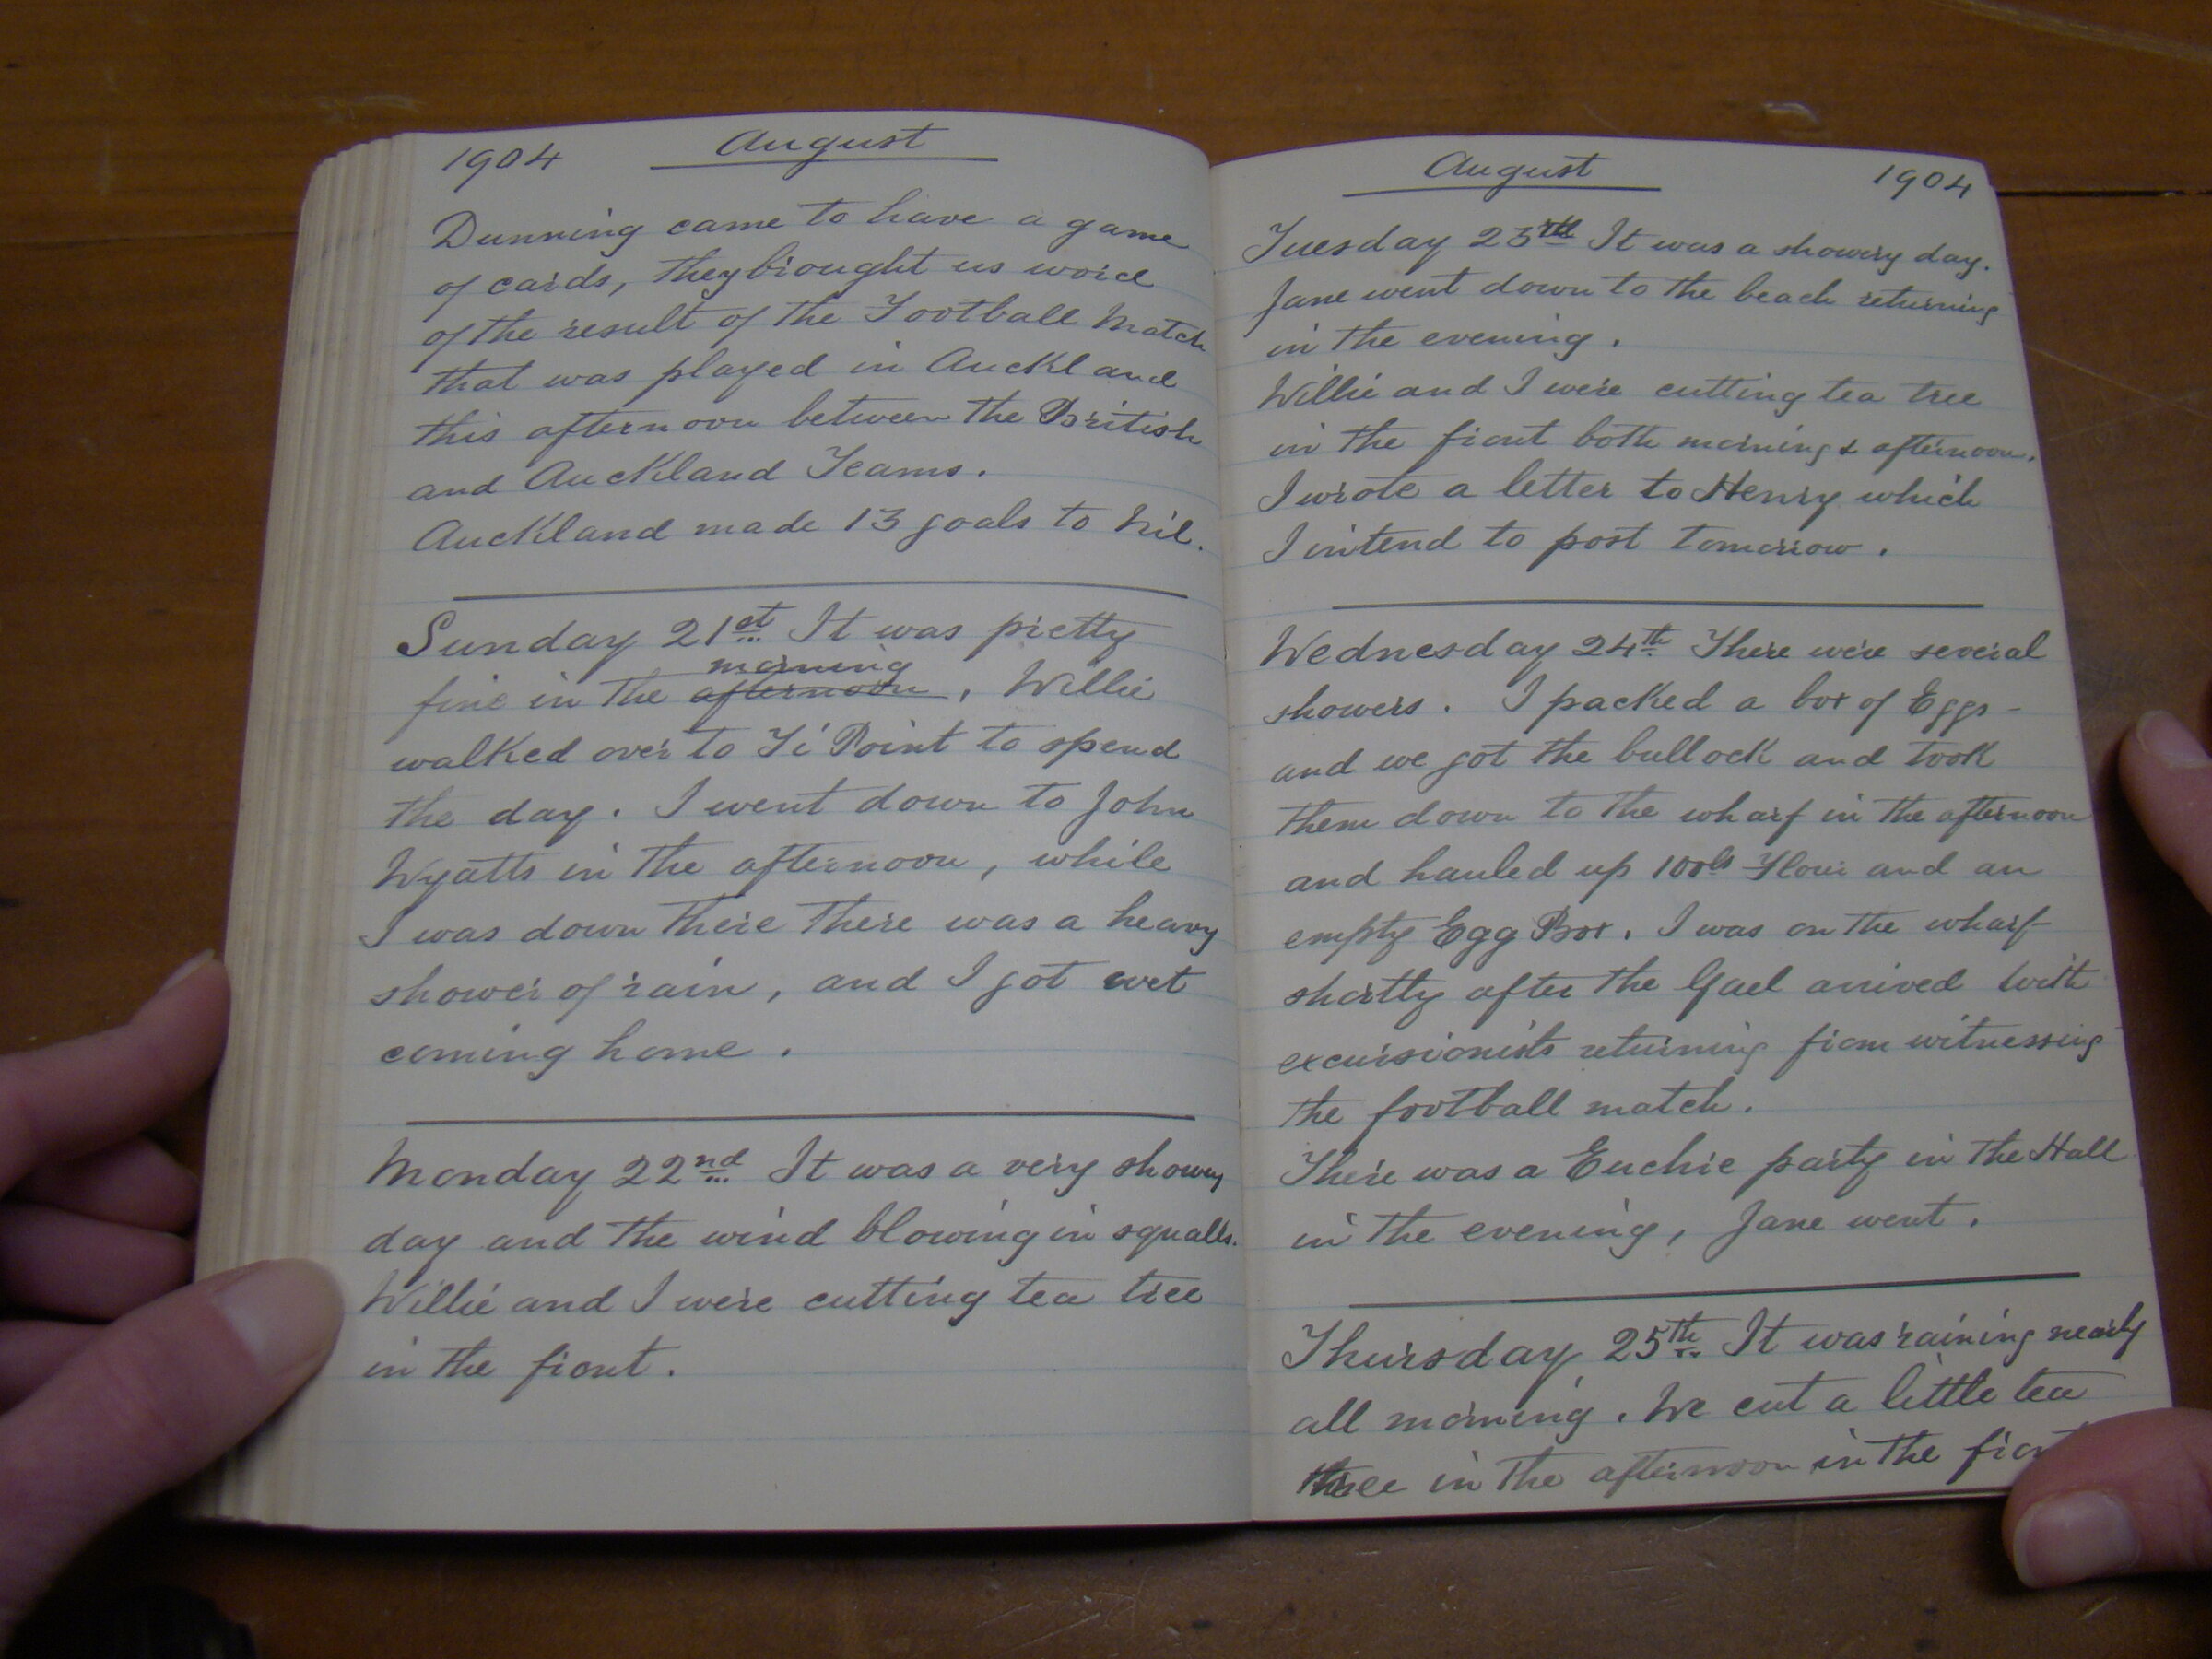 1904 August
Dunning came to have a game
of cards, they brought us word
of the result of the Football Match
that was played in Auckland
this afternoon between the British
and Auckland Teams.
Auckland made 13 goals to Nil.
Sunday 21st It was pretty
morning
fine in the afternoon, Willie
walked over to Ti Point to spend
the day. I went down to John
Wyatts in the afternoon, while
I was down there there was a heavy
shower of rain, and I got wet
coming home.
Monday 22nd It was a very showery
day and the wind blowing in squalls.
Willie and I were cutting tea tree
in the front.
August 1904
Tuesday 23rd It was a showery day.
Jane went down to the beach returning
in the evening.
Willie and I were cutting tea tree
in the front both morning & afternoon.
I wrote a letter to Henry which
I intend to post tomorrow.
Wednesday 24th There were several
showers. I packed a box of Eggs -
and we got the bullock and took
them down to the wharf in the afternoon
and hauled up 100lb Flour and an
empty Egg Box. I was on the wharf
shortly after the Gael arrived with
excursionists returning from witnessing
the football match.
There was a Euchre party in the Hall
in the evening, Jane went.
Thursday 25th It was raining nearly
all morning. We cut a little tea
tree in the afternoon in the front